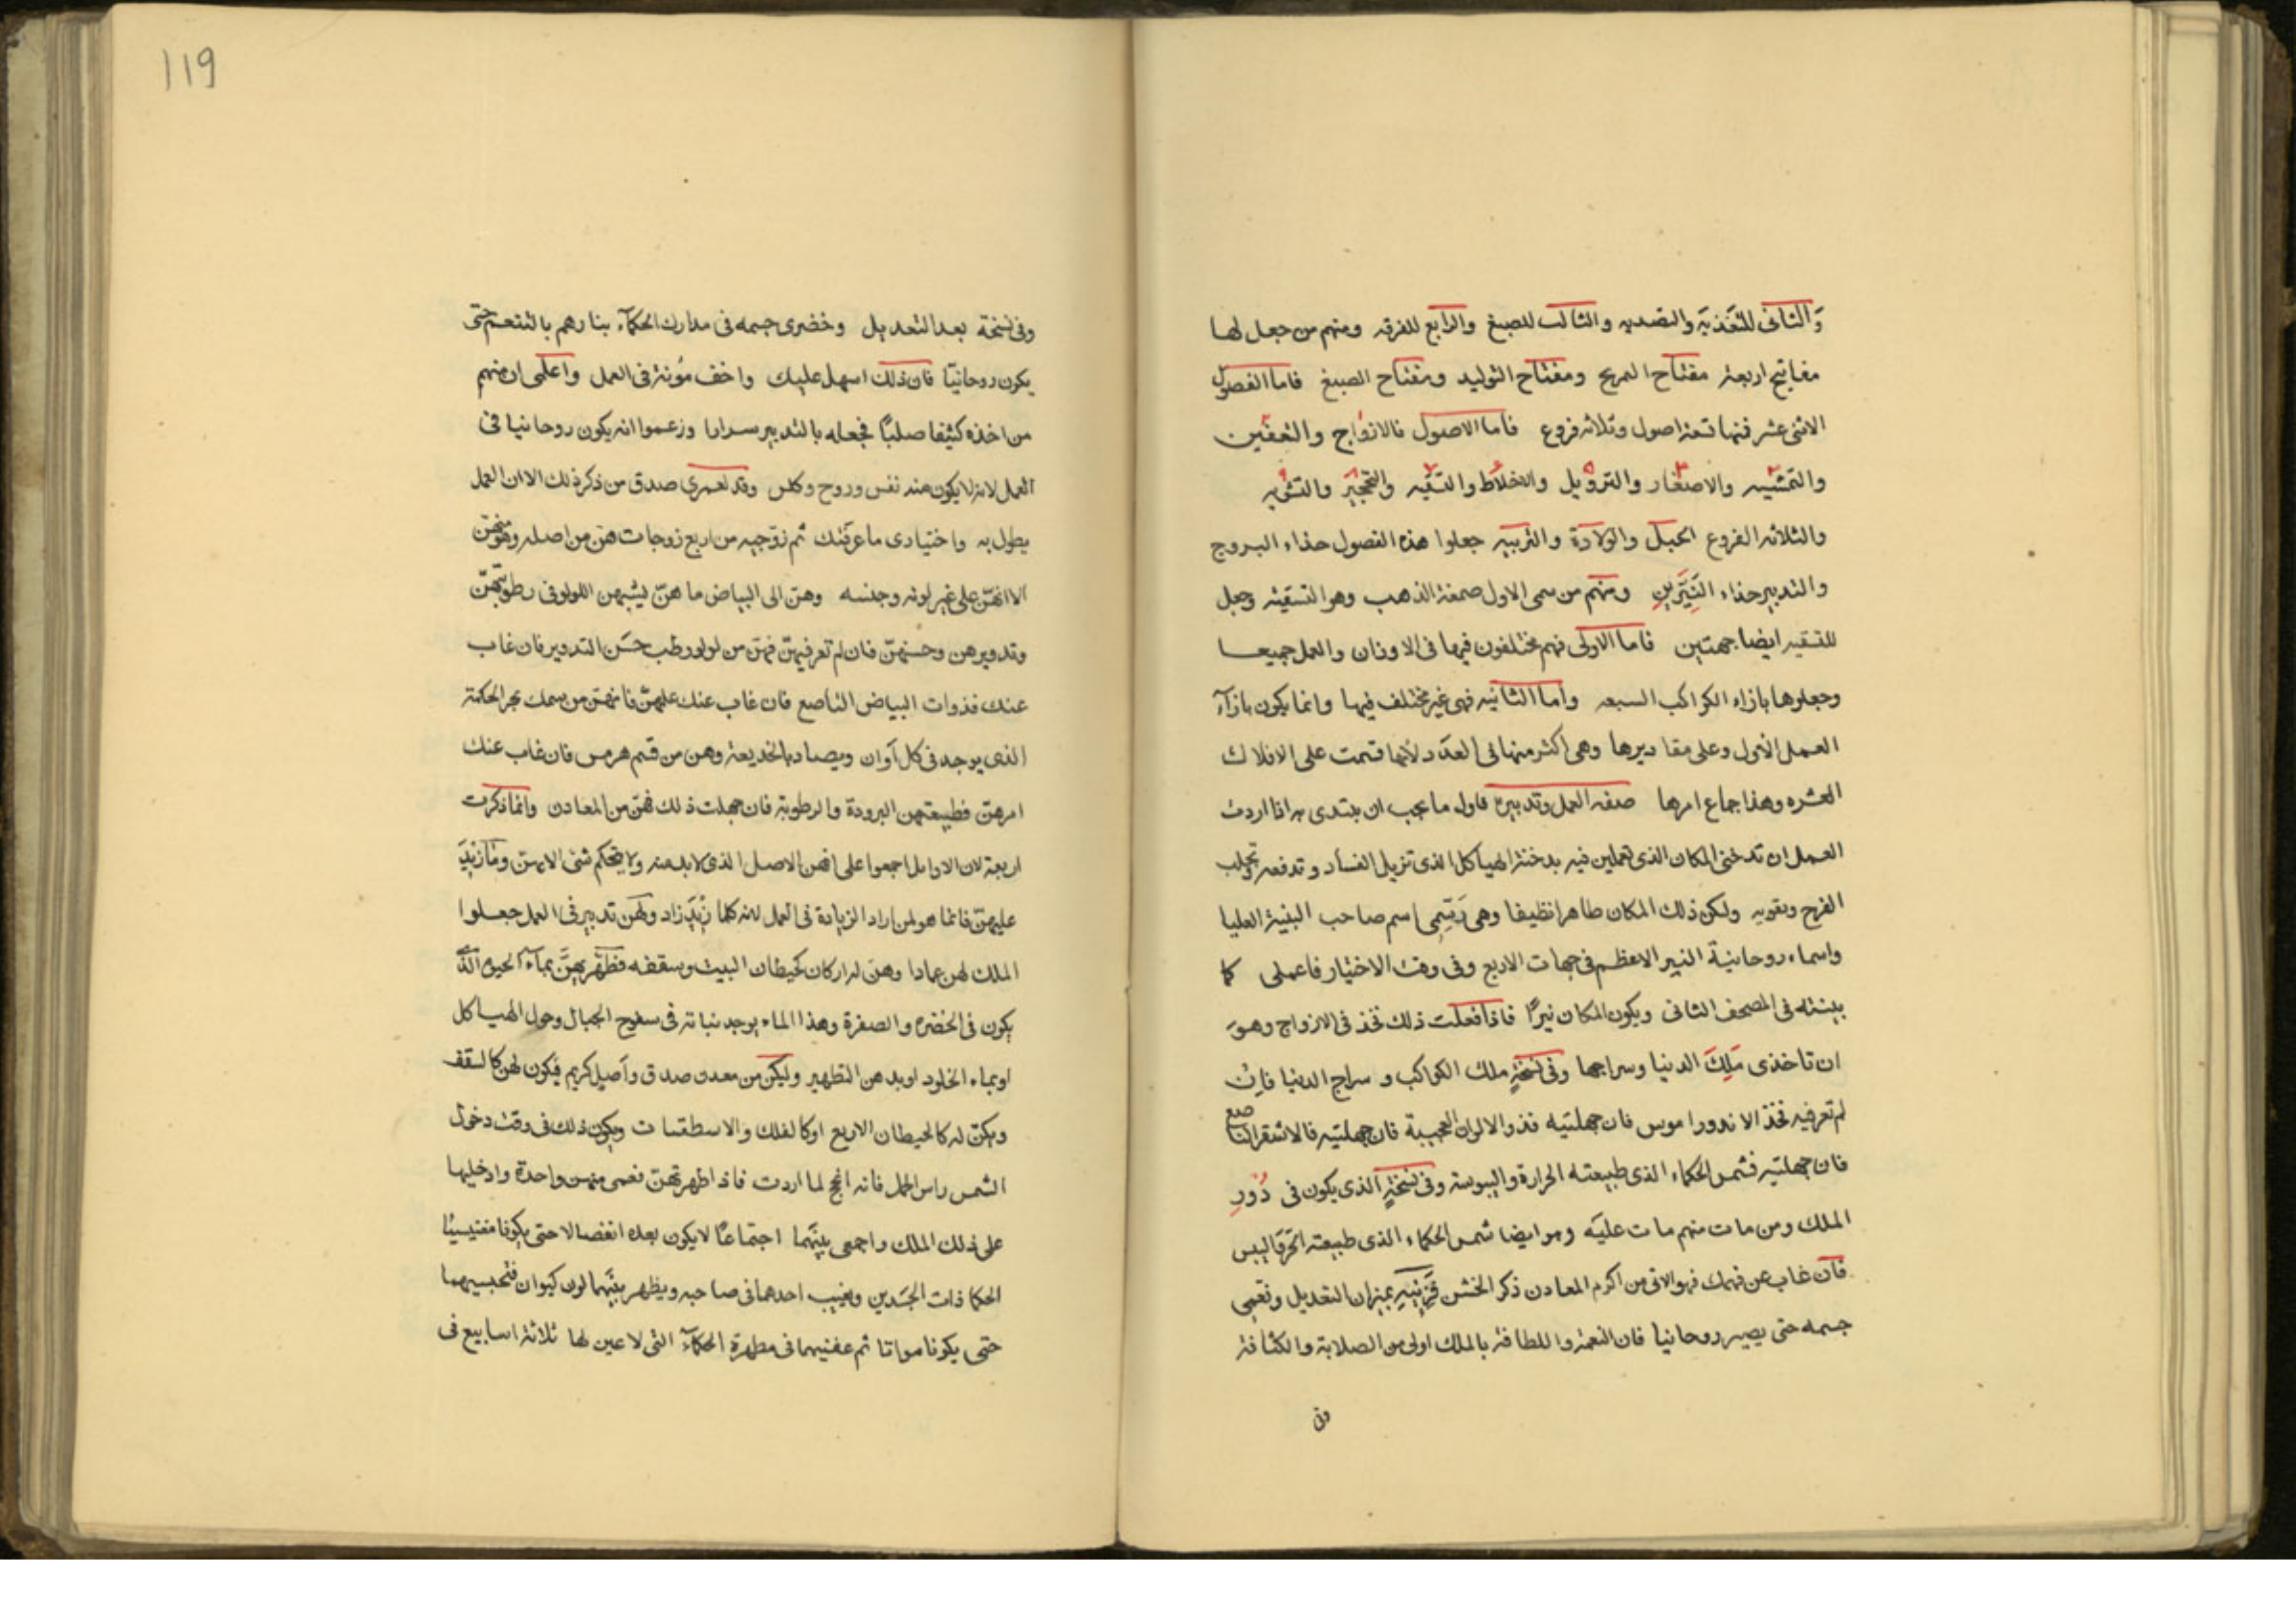 وَالثانى للتغذية والتصديه والثالث للصبغ والرابع للفرقه ومنهم من جعل لها
مفاتيح اربعة مفتاح المريح ومفتاح التوليد ومفتاح الصبغ فاما الفصول
الاثنى عشر فمنها تسعة اصول وثلاثه فروع فاما الاصول فالازواج والتعفين
والتمشيه والاصغار والترويل والاخلاط والتنقيه والتحجير والتشويه
والثلاثه الفروع الحبل والولادة والتربيه جعلوا هذه الفصول حذاء البروج
والتدبير حذاء النَيَّرينِ ومنهم من سمى الاول صمغة الذهب وهو التسقيه وجعل
للتسقيه ايضا جهتين فاما الاولى فهم مختلفون فيها فى الاوزان والعمل جميعا
وجعلوها بازاء الكواكب السبعه واما الثانيه فهى غير مختلف فيها وانما يكون بازآء
العمل الاول وعلى مقاديرها وهى اكثر منها فى العدد لأنها قسمت على الافلاك
العشره وهذا جماع امرها صفة العمل وتدبيره فاول ما يجب ان يبتدى به اذا اردت
العمل ان تدخنى المكان الذى تعملين فيه بدخنة الهياكل الذى تزيل الفساد وتدفعه وتجلب
الفرح وتقويه وليكن ذلك المكان طاهرا نظيفا وهى اسم صاحب البنية العليا
واسماء روحانية النير الاعظم فى جهات الاربع وفى وقت الاختيار فاعملى كما
بينته فى المصحف الثانى ويكون المكان نيرًا فاذا فعلت ذلك فخذ فى الازواج وهوَ
ان تاخذى مَلِكَ الدنيا وسراجها وفى نسخةٍ ملك الكواكب و سراج الدنيا فان
لم تعرفيه فخذ الاندورا موس فان جهلتيه فذو الالوان العجيبة فان جهلتيه فالاشقر الناصع
فان جهلتيه فشمس الحكماء الذى طبيعته الحرارة واليبوسة وفى نسخةٍ الذى يكون فى دُورِ
الملك ومن مات منهم مات عليه وهو ايضا شمس الحكماء الذى طبيعته الحرّ واليبس
فان غاب عن فهمك فهو الاتى من اكرم المعادن ذكر الخشن فزنيهِ بميزان التعديل ونعمى
جسمه حتى يصير روحانيا فان النعمة واللطافة بالملك اولى من الصلابة والكثافة
وفى
119
وفى نسخة بعد التعديل وخضرى جسمه فى مدارك الحكمآء بنارهم بالتنعم حتى
يكون روحانيّا فان ذلك اسهل عليك واخف مؤنة فى العمل واعلمى ان منهم
من اخذه كثيفا صلبًا فجعله بالتدبير سرارا وزعموا انه يكون روحانيا فى
العمل لانه لا يكون منه نفس وروح وكلس وقد لعمرى صدق من ذكر ذلك الا ان العمل
يطول به واختيارى ما عرفتك ثم زوّجيه من اربع زوجات هن من اصله وهو منهن
الا انهنّ على غير لونه وجنسه وهن الى البياض ما هنّ يشبهن اللولو فى رطوبتهنّ
وتدويرهن وحسنهنّ فان لم تعرفيهنّ فهن من لولو رطب حسَن التدوير فان غاب
عنك فذوات البياض الناصع فان غاب عنك علمهنّ فانهن من سمك بحر الحكمة
الذى يوجد فى كل آوان ويصاد بالخديعة وهن من قسم هرمس فان غاب عنك
امرهنّ فطبيعتهن البرودة والرطوبة فان جهلت ذلك فهنّ من المعادن وانما ذكرت
اربعة لان الاوايل اجمعوا على انهن الاصل الذى لابد منه ولا يتحكم شئ الا بهنّ وما زيد
عليهنّ فانما هو لمن اراد الزيادة فى العمل لانه كلما زُيّدَ زاد ولهن تدبير فى العمل جعلوا
الملك لهن عمادا وهن له اركان كحيطان البيت وسقفه فطَهَّريهنَّ بمآء الحيوة الذى
يكون فى الخضره والصفرة وهذا الماء يوجد نباته فى سفوح الجبال وحول الهياكل
او بماء الخلود او بدهن التطهير وليكن من معدن صدق وأصيل كريم فيكون لهن كالسقف
ويكنّ له كالحيطان الاربع او كالفلك والاسطقسات ويكون ذلك فى وقت دخول
الشمس راس الحمل فانه انجح لما اردت فاذا طهرتهنّ فعمى منهن واحدة وادخليها
على ذلك الملك واجمعى بينَهما اجتماعًا لا يكون بعده انفصالا حتى يكونا مغنيسيا
الحكما ذات الجسَدين ويغيب احدهما فى صاحبه ويظهر بينَهما لون كيوان فتحبسيهما
حتى يكونا مواتا ثم عفنيهما فى مطهرة الحكمآء التى لا عين لها ثلاثة اسابيع فى